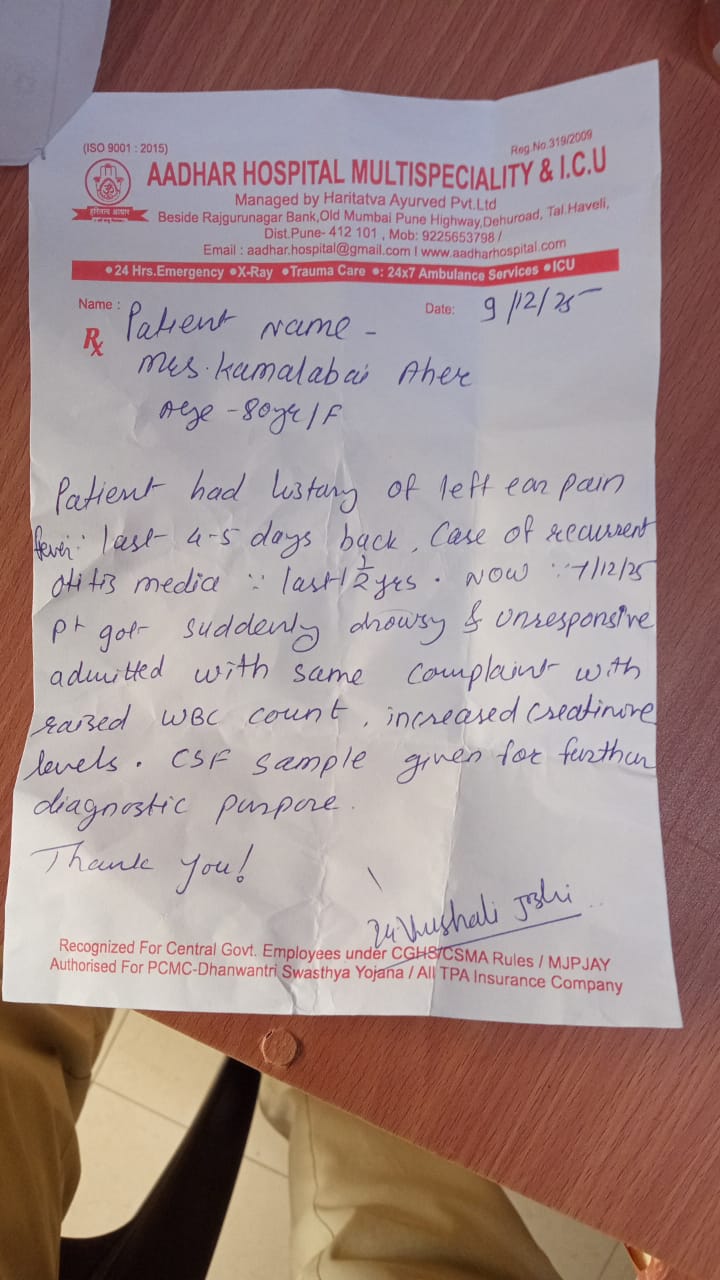 (ISO 9001 : 2015)
Reg.No.319/2009
AADHAR HOSPITAL MULTISPECIALITY & I.C.U
हरितत्व आयुर्वेद
Managed by Haritatva Ayurved Pvt.Ltd
Beside Rajgurunagar Bank,Old Mumbai Pune Highway,Dehuroad, Tal.Haveli,
Dist.Pune- 412 101 , Mob: 9225653798 /
Email : aadhar.hospital@gmail.com I www.aadharhospital.com
•24 Hrs.Emergency •X-Ray •Trauma Care •: 24x7 Ambulance Services •ICU
Name :
Date: 9/12/25
Rx Patient Name -
Mrs. Kamalabai Aher
Age - 80yr/F
Patient had history of left ear pain
fever ∵ last 4-5 days back. Case of recurrent
otitis media ∵ last 1 1/2 yrs. NOW ∵ 7/12/25
Pt got suddenly drowsy & unresponsive
admitted with same complaint with
raised WBC count, increased Creatinine
levels. CSF sample given for further
diagnostic purpose.
Thank you!
Vrushali Joshi
Recognized For Central Govt. Employees under CGHS/CSMA Rules / MJPJAY
Authorised For PCMC-Dhanwantri Swasthya Yojana / All TPA Insurance Company